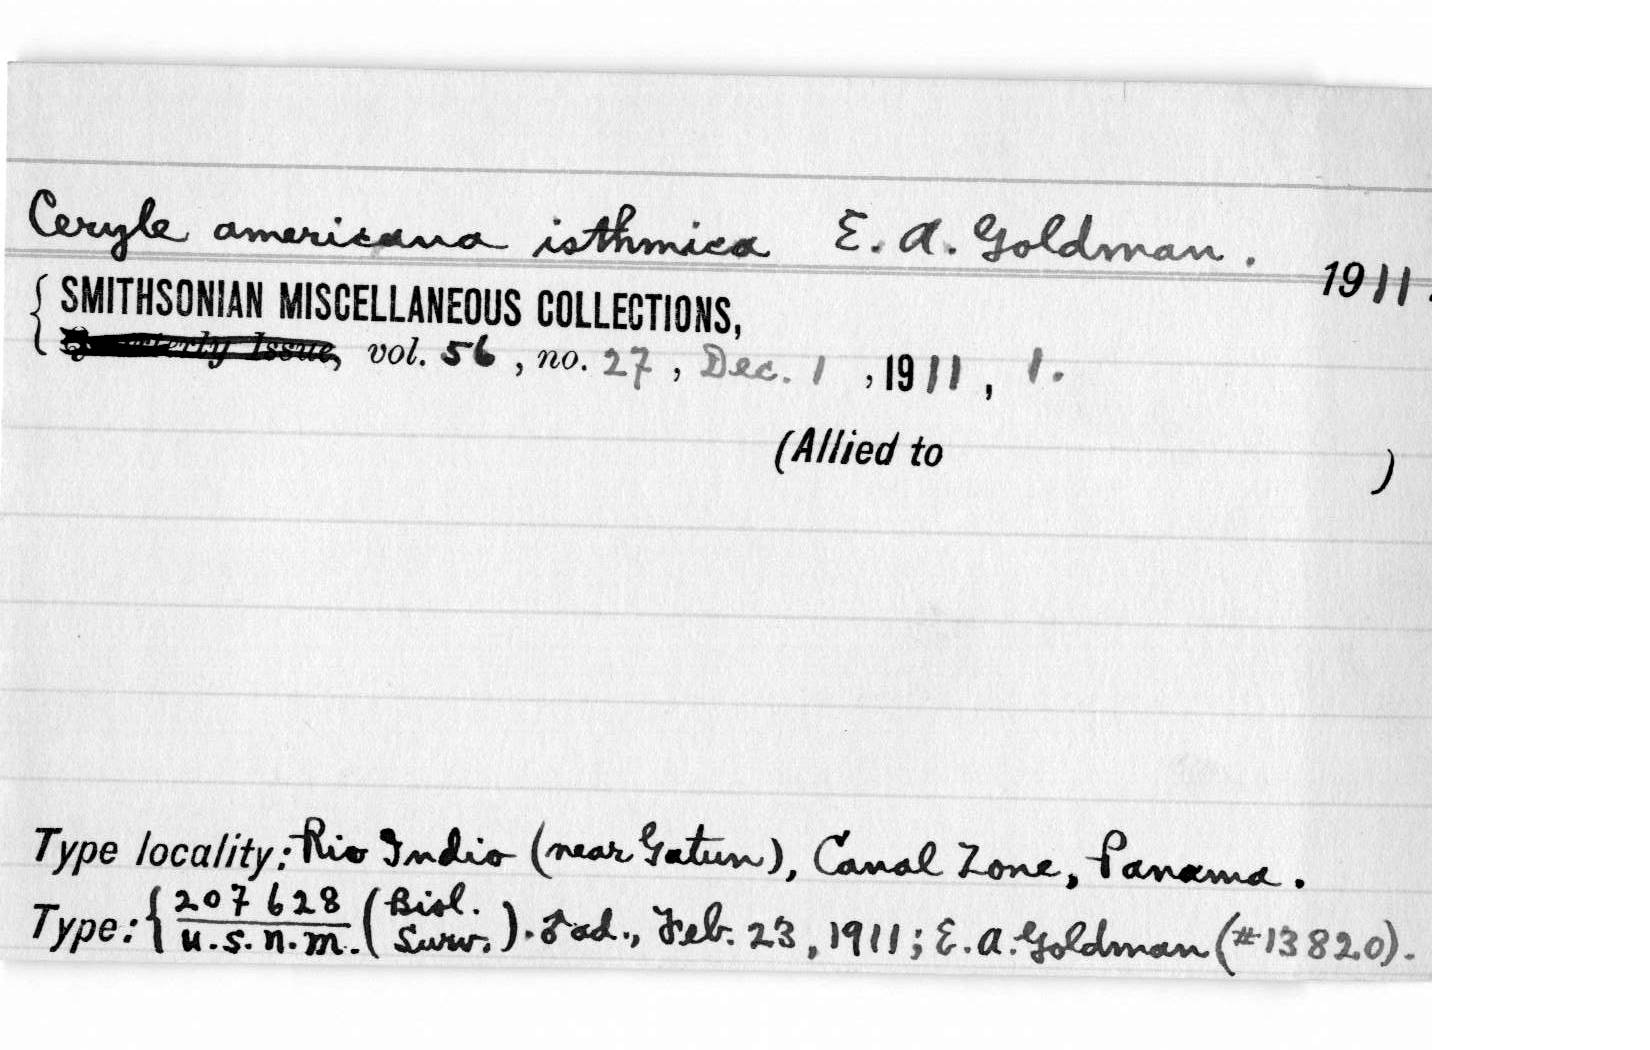 Ceryle americana isthmica E. A. Goldman. 1911.
{ SMITHSONIAN MISCELLANEOUS COLLECTIONS,
Quarterly Issue, vol. 56, no. 27, Dec. 1, 1911, 1.
(Allied to )
Type locality: Rio Indio (near Gatun), Canal Zone, Panama.
Type: { 207628 (Biol.
U.S.N.M. Surv.). ♂ ad., Feb. 23, 1911; E. A. Goldman (#13820).